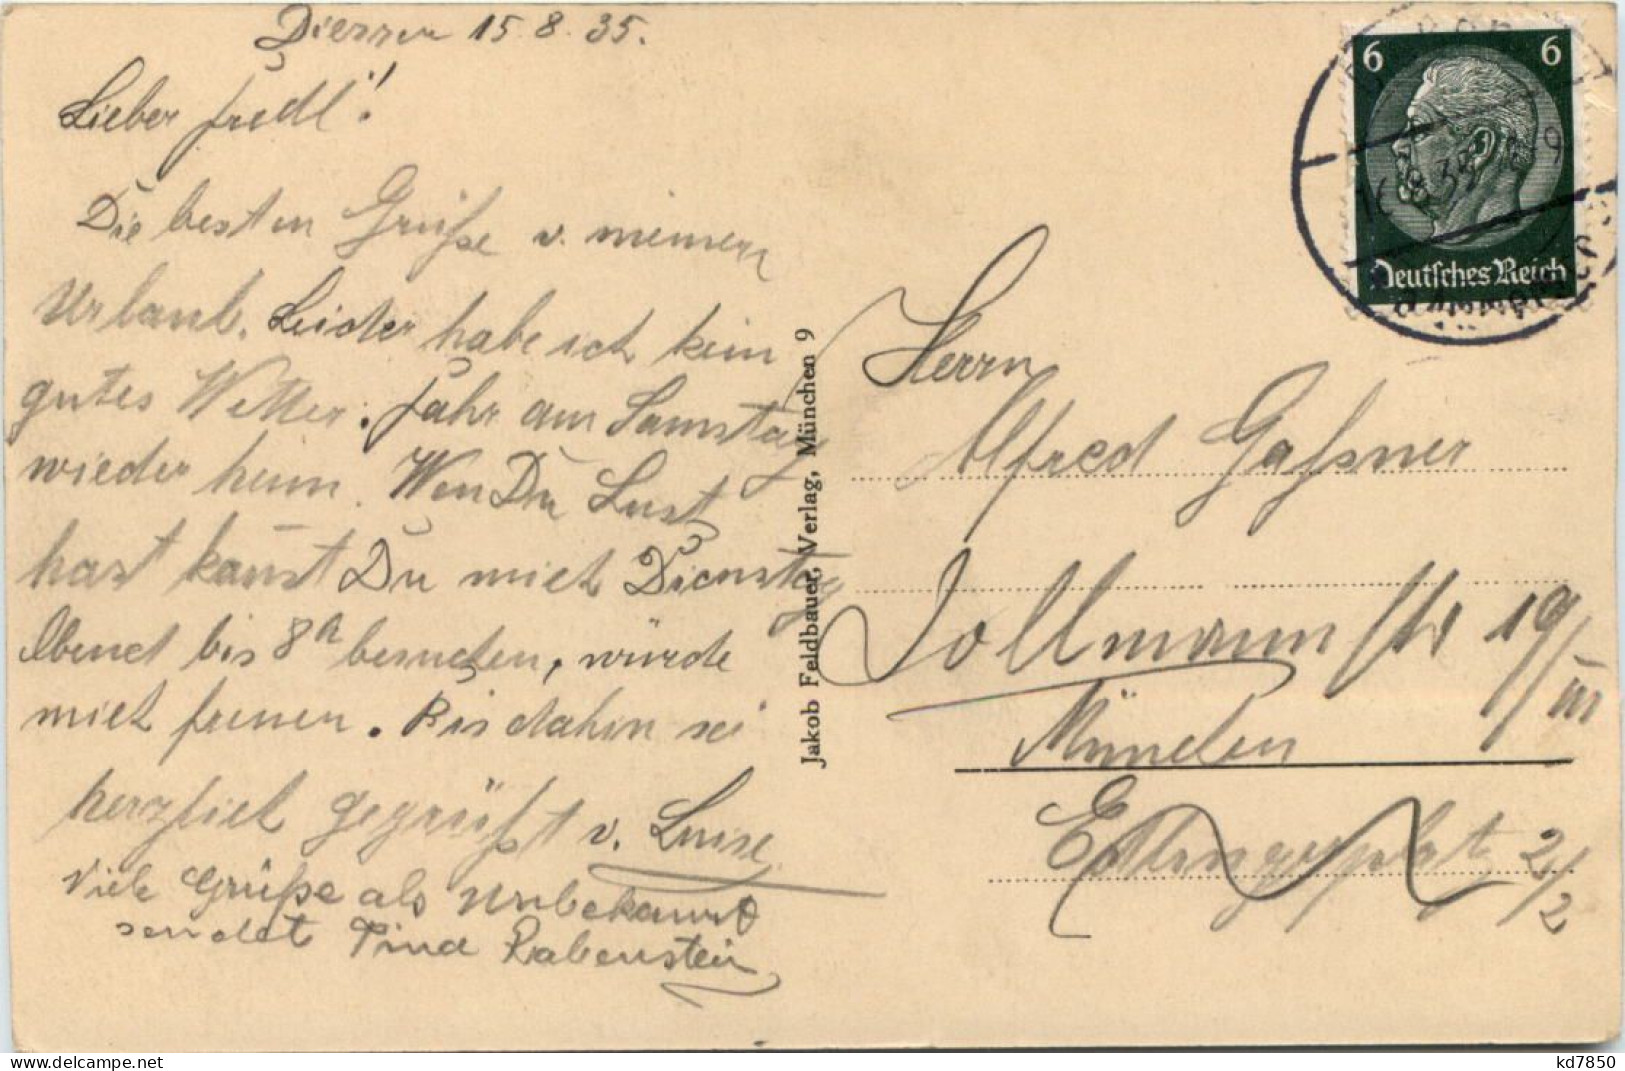 Diessen 15.8.35.
Lieber Fredl!
Die besten Grüße v. meinem
Urlaub. Leider habe ich kein
gutes Wetter. Fahr am Samstag
wieder heim. Wen Du Lust
hast kan̄st Du mich Dienstag
Abend bis 8h besuchen, würde
mich freuen. Bis dahin sei
herzlich gegrüßt v. Luise
Viele Grüße als Unbekannt
sendet Tina Rabenstein
Jakob Feldbauer, Verlag, München 9
6 6
16.8.35
Deutsches Reich
Herrn
Alfred Gaßner
Zollmannstr 19/III
München
2/2
kd7850